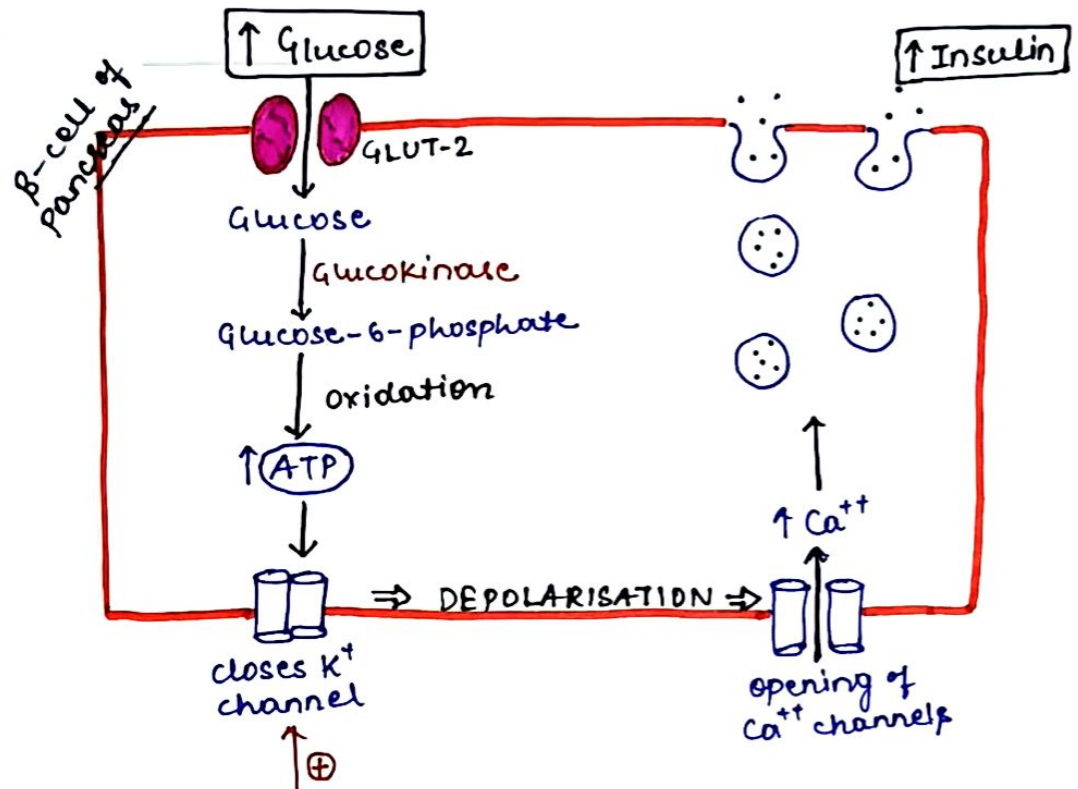 ↑ Glucose
↑ Insulin
β-cell of
Pancreas
GLUT-2
Glucose
Glucokinase
Glucose-6-phosphate
Oxidation
↑ ATP
↑ Ca⁺⁺
⇒ DEPOLARISATION ⇒
closes K⁺
channel
opening of
Ca⁺⁺ channels
⊕